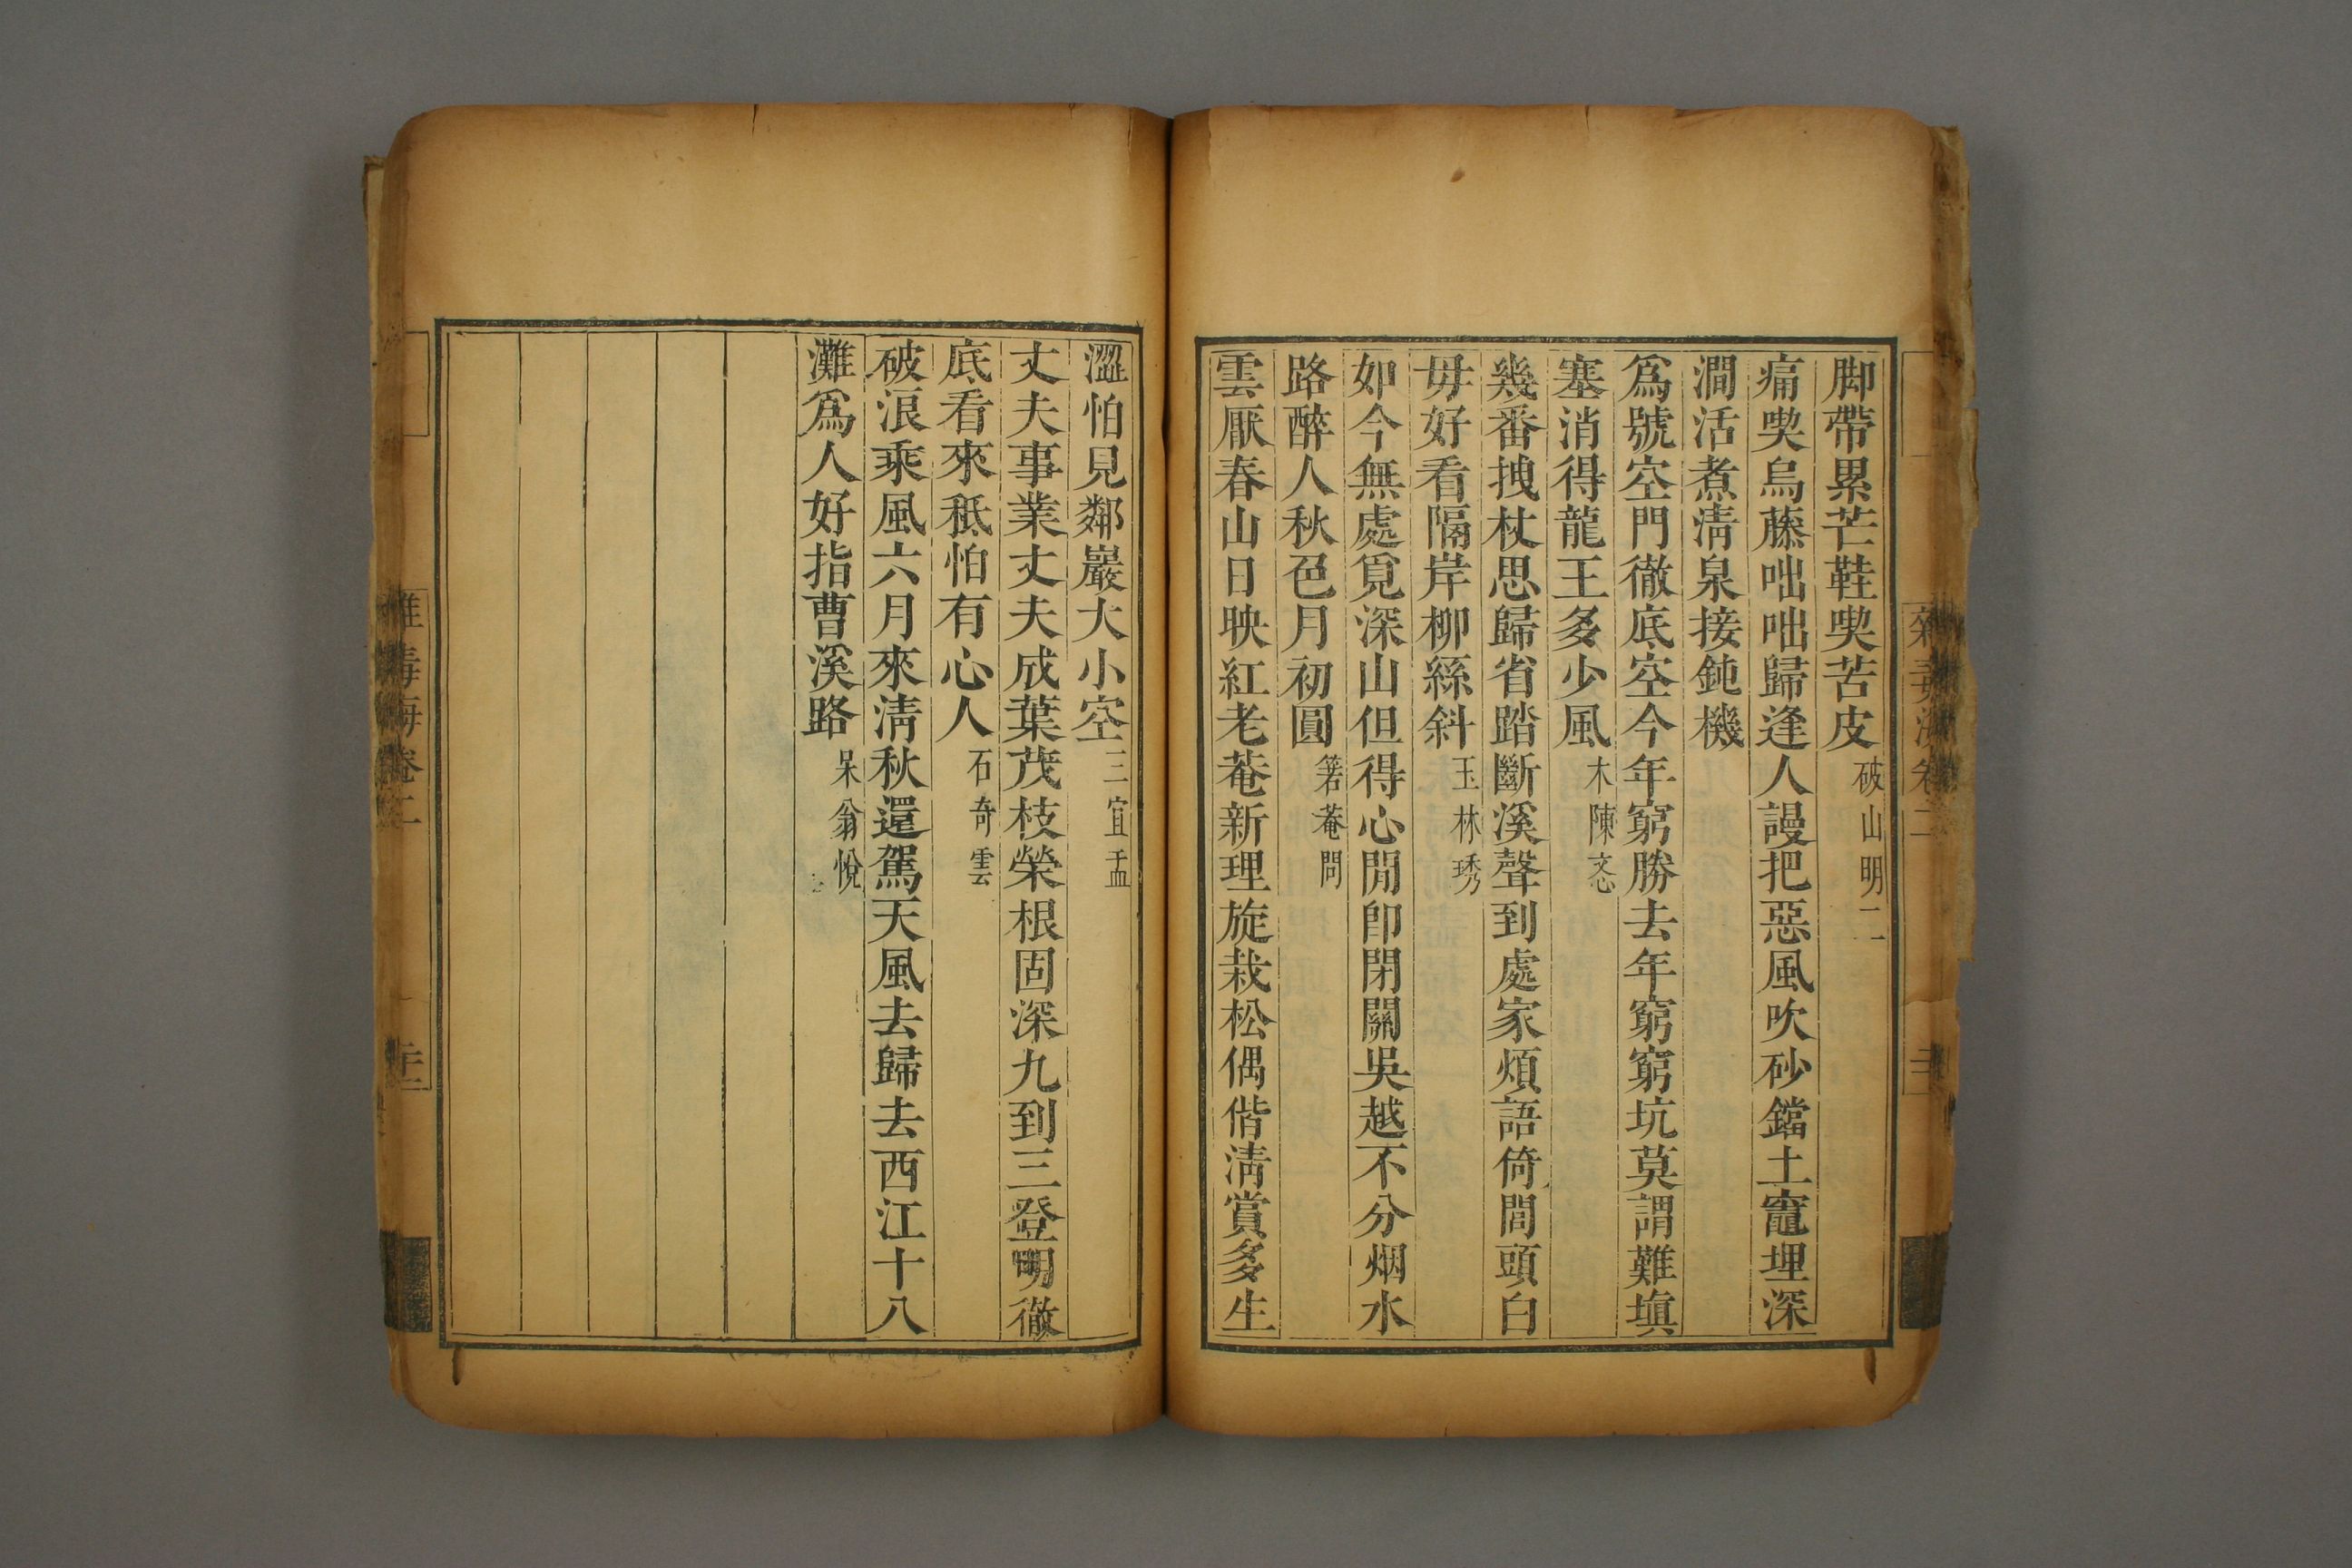 脚帶累芒鞋喫苦皮 破山明二
痛喫烏藤咄咄歸逢人謾把惡風吹砂鐺土竈埋深
澗活煮清泉接鈍機
爲號空門徹底空今年窮勝去年窮窮坑莫謂難塡
塞消得龍王多少風 木陳忞
幾番拽杖思歸省踏斷溪聲到處家煩語倚閭頭白
毋好看隔岸柳絲斜 玉林琇
如今無處覓深山但得心閒卽閉關吳越不分烟水
路醉人秋色月初圓 箬菴問
雲厭春山日映紅老菴新理旋栽松偶偕清賞多生
澀怕見鄰巖大小空 三宜盂
丈夫事業丈夫成葉茂枝榮根固深九到三登明徹
底看來秪怕有心人 石奇雲
破浪乘風六月來清秋還駕天風去歸去西江十八
灘爲人好指曹溪路 呆翁悅
海卷二